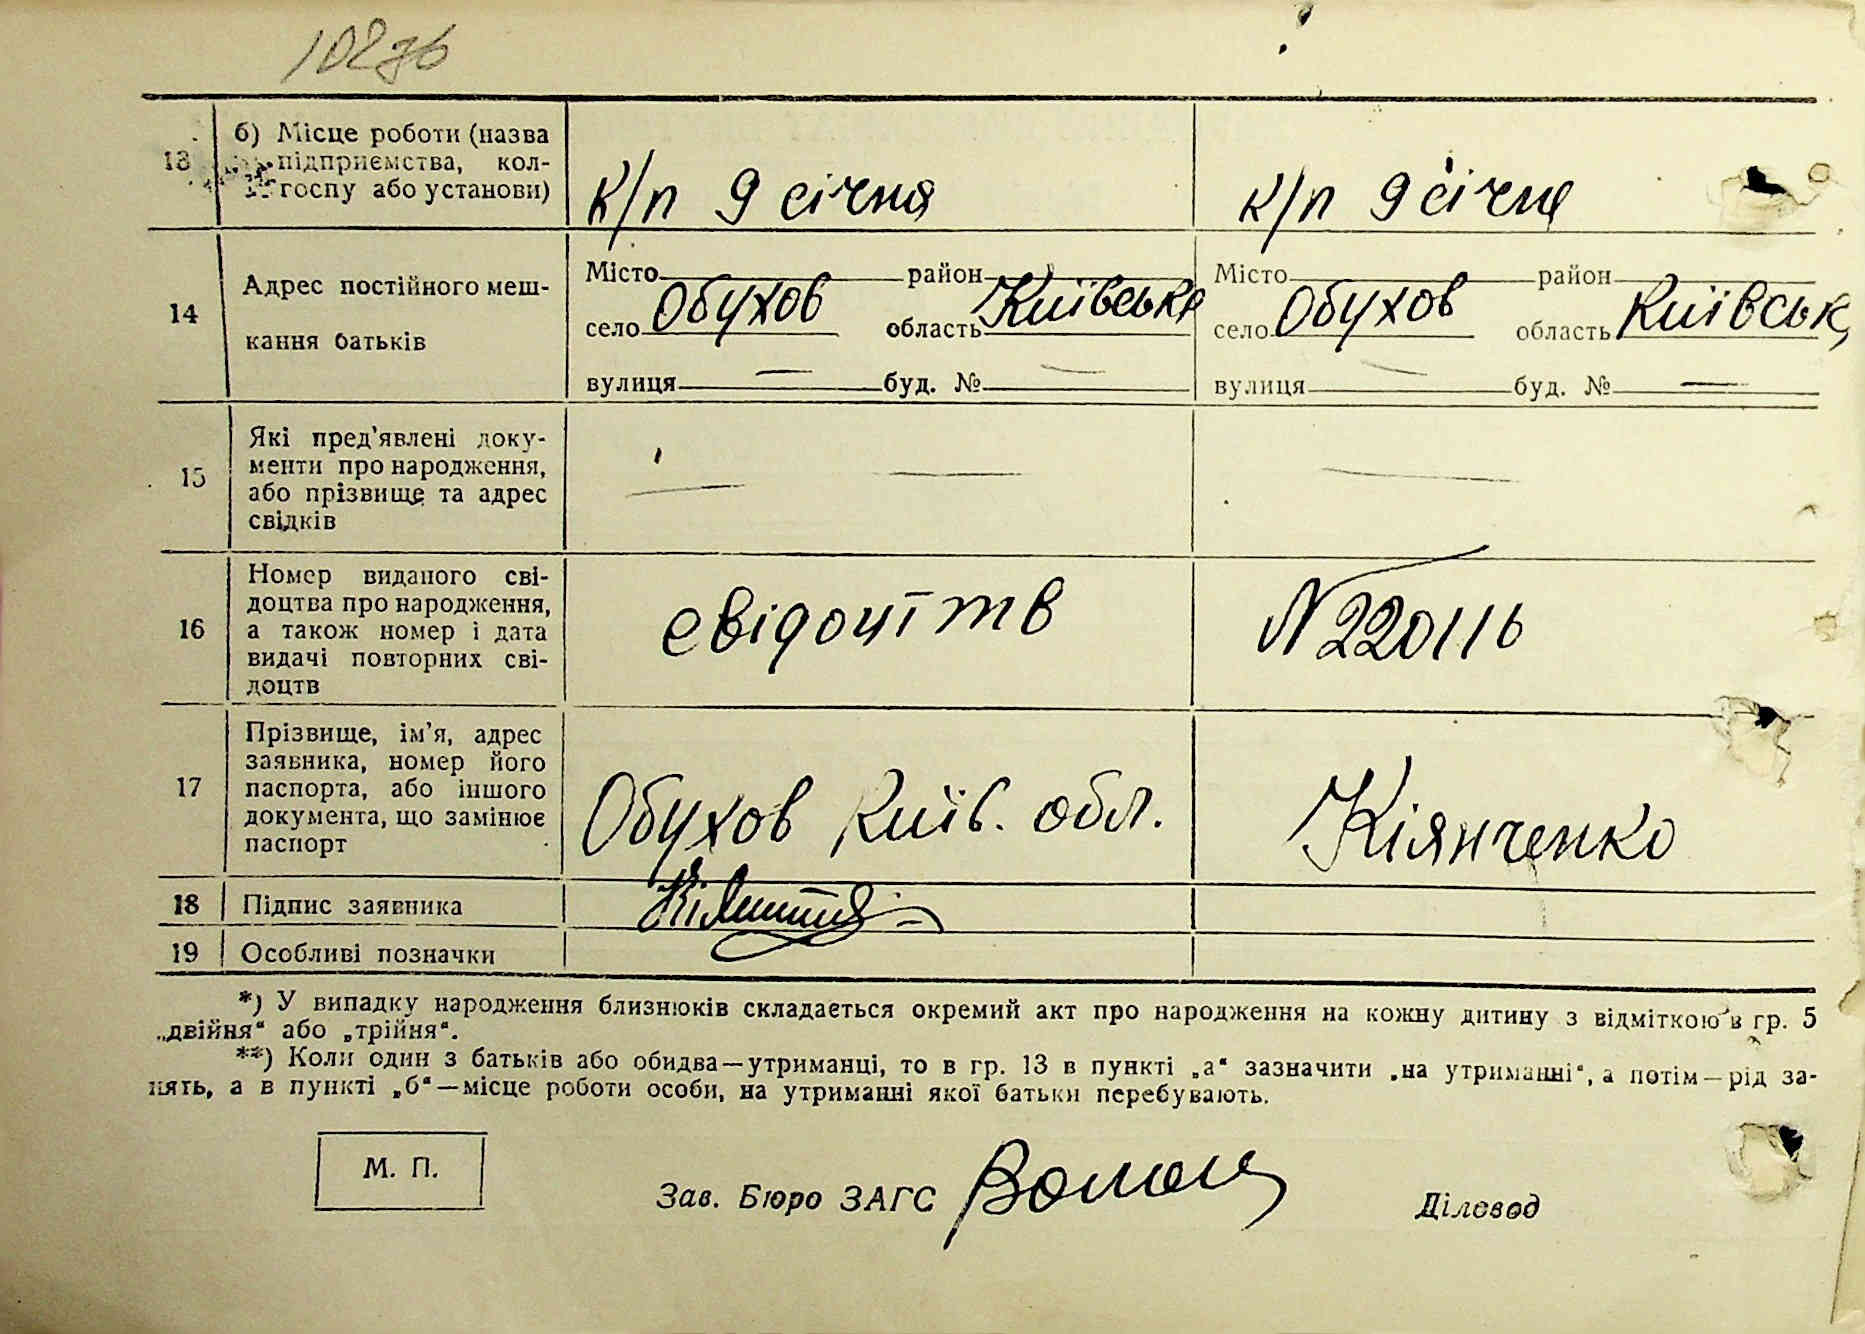 13 б) Місце роботи (назва
підприємства, кол-
госпу або установи)
к/п 9 січня
к/п 9 січня
14 Адрес постійного меш-
кання батьків
Місто район
село Обухов область Київська
вулиця — буд. № —
Місто район
село Обухов область Київськ
вулиця — буд. № —
15 Які пред'явлені доку-
менти про народження,
або прізвище та адрес
свідків
— — —
16 Номер виданого сві-
доцтва про народження,
а також номер і дата
видачі повторних сві-
доцтв
свідоцтв
N 220116
17 Прізвище, ім'я, адрес
заявника, номер його
паспорта, або іншого
документа, що замінює
паспорт
Обухов Київ. обл.
Кіянченко
18 Підпис заявника
19 Особливі позначки
*) У випадку народження близнюків складається окремий акт про народження на кожну дитину з відміткою в гр. 5
„двійня“ або „трійня“.
**) Коли один з батьків або обидва—утриманці, то в гр. 13 в пункті „а“ зазначити „на утриманні“, а потім—рід за-
нять, а в пункті „б“—місце роботи особи, на утриманні якої батьки перебувають.
М. П.
Зав. Бюро ЗАГС
Діловод